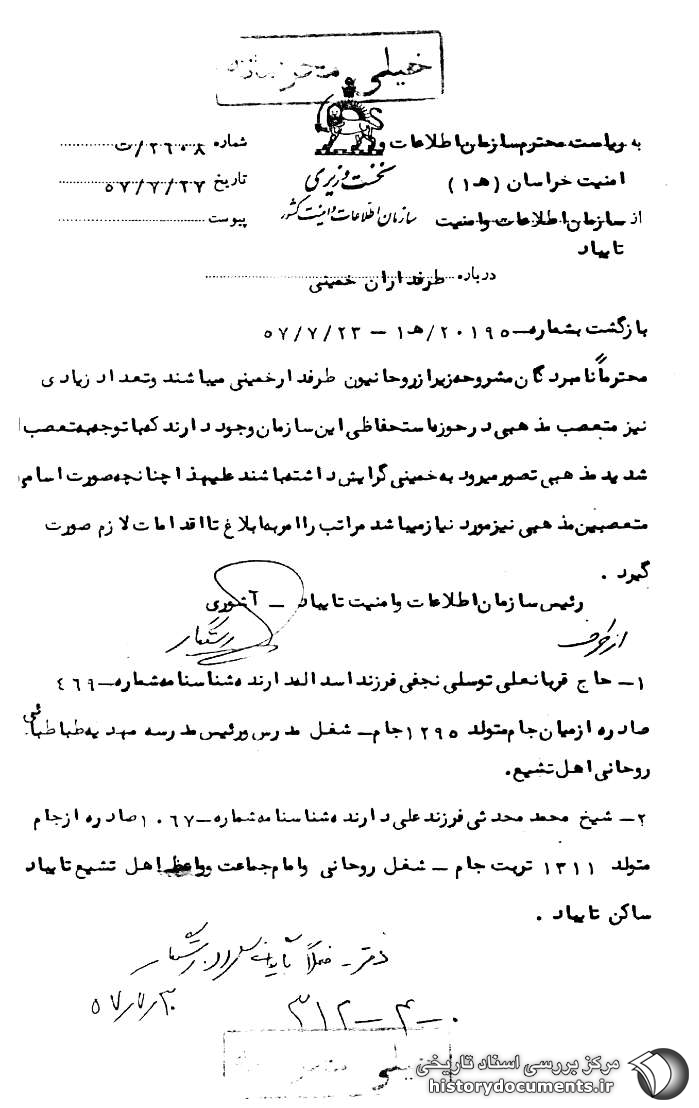 خیلی محرمانه
به ریاست محترم سازمان اطلاعات و
امنیت خراسان (ه‍ ۱)
از سازمان اطلاعات و امنیت
تایباد
نخست وزیری
سازمان اطلاعات و امنیت کشور
شماره ۲۶۰۸/ت
تاریخ ۵۷/۷/۲۷
پیوست
درباره طرفداران خمینی
بازگشت بشماره ۲۰۱۹۵/ه‍ ۱ – ۵۷/۷/۲۳
محترماً نامبردگان مشروحه زیر از روحانیون طرفدار خمینی میباشند و تعداد زیادی
نیز متعصب مذهبی در حوزه استحفاظی این سازمان وجود دارند که با توجه به تعصب
شدید مذهبی تصور میرود به خمینی گرایش داشته باشند علیهذا چنانچه صورت اسامی
متعصبین مذهبی نیز مورد نیاز میباشد مراتب را امر به ابلاغ تا اقدامات لازم صورت
گیرد .
رئیس سازمان اطلاعات و امنیت تایباد – آشوری
از طرف رستگار
۱– حاج قربانعلی توسلی نجفی فرزند اسداله دارنده شناسنامه شماره – ۴۶۹
صادره از میان جام متولد ۱۲۹۵ جام – شغل مدرس و رئیس مدرسه مهدیه طباطبائی
روحانی اهل تشیع.
۲– شیخ محمد محدثی فرزند علی دارنده شناسنامه شماره – ۱۰۶۷ صادره از جام
متولد ۱۳۱۱ تربت جام – شغل روحانی و امام جماعت و واعظ اهل تشیع تایباد
ساکن تایباد .
دفتر – فعلاً
۵۷/۷/۳۰
۳۱۲–۴–۰
خیلی محرمانه
مرکز بررسی اسناد تاریخی
historydocuments.ir